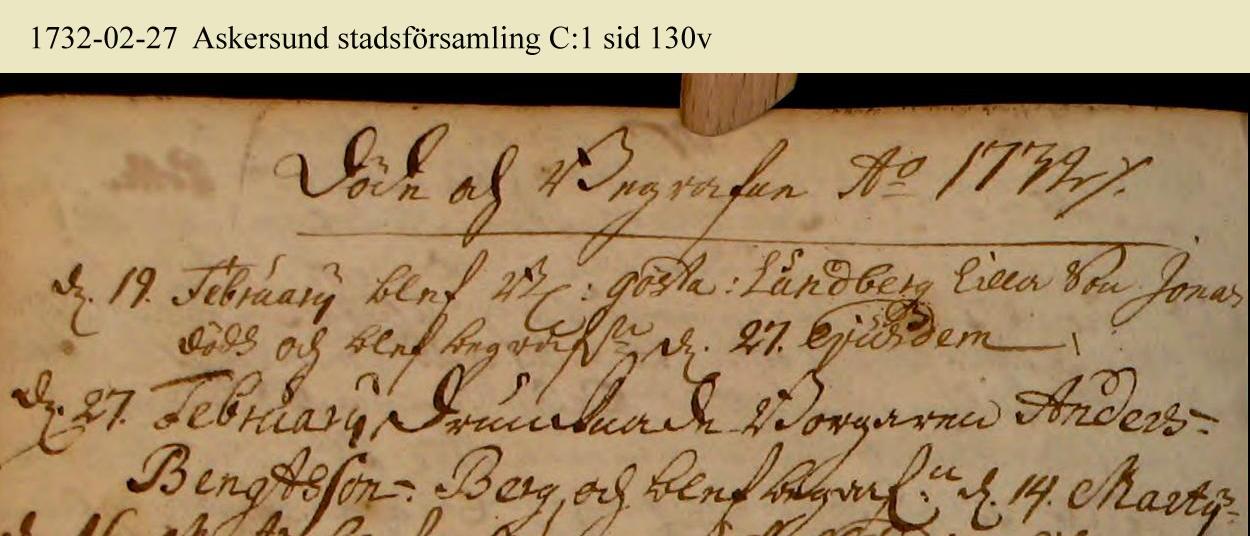 1732-02-27 Askersund stadsförsamling C:1 sid 130v
Döde och Begrafne Ao 1732
d. 19. Februarij blef : Gösta : Lundberg Lilla Son Jonas
dödh och blef begrafn d. 27. Ejusdem
d. 27. Februarij, Drunknade Borgaren Anders=
Bengtsson Berg, och blef begraf:n d. 14. Martij